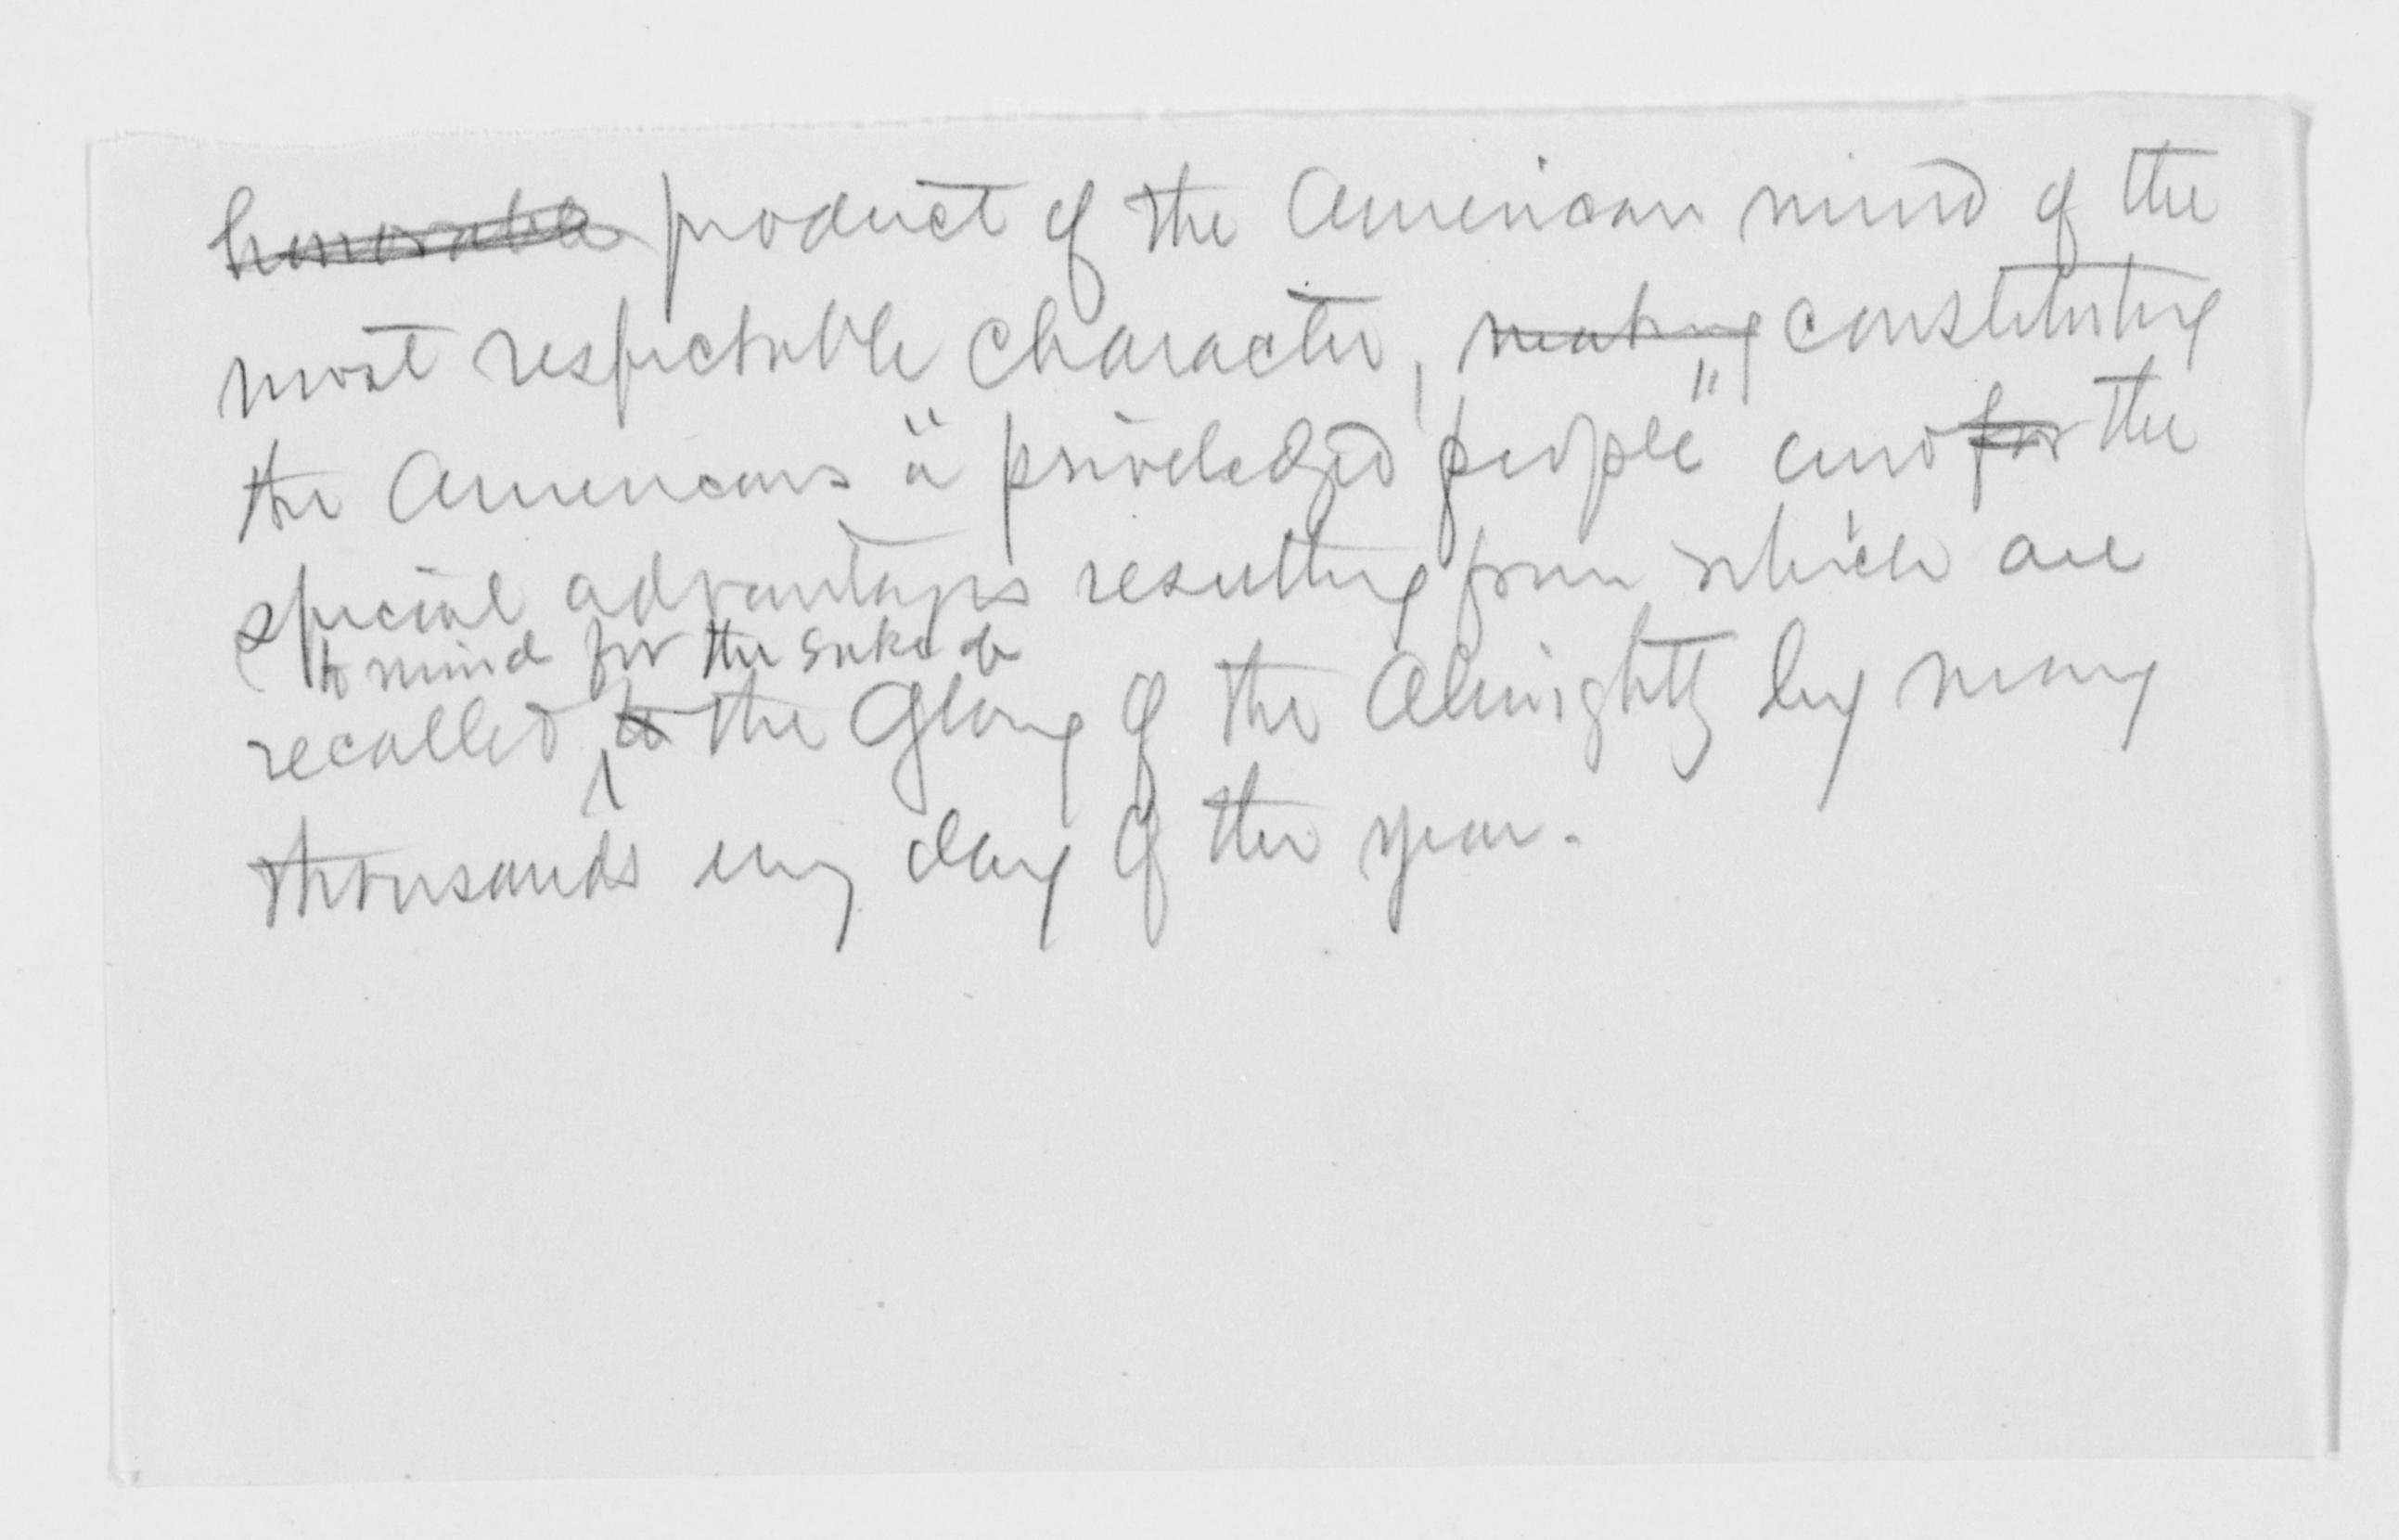 honorable product of the American mind of the
most respectable character, making constituting
the Americans "a priveledged people" and for the
special advantages resulting from which are
to mind for the sake of
recalled to the Glory of the Almighty by many
thousands every day of the year.